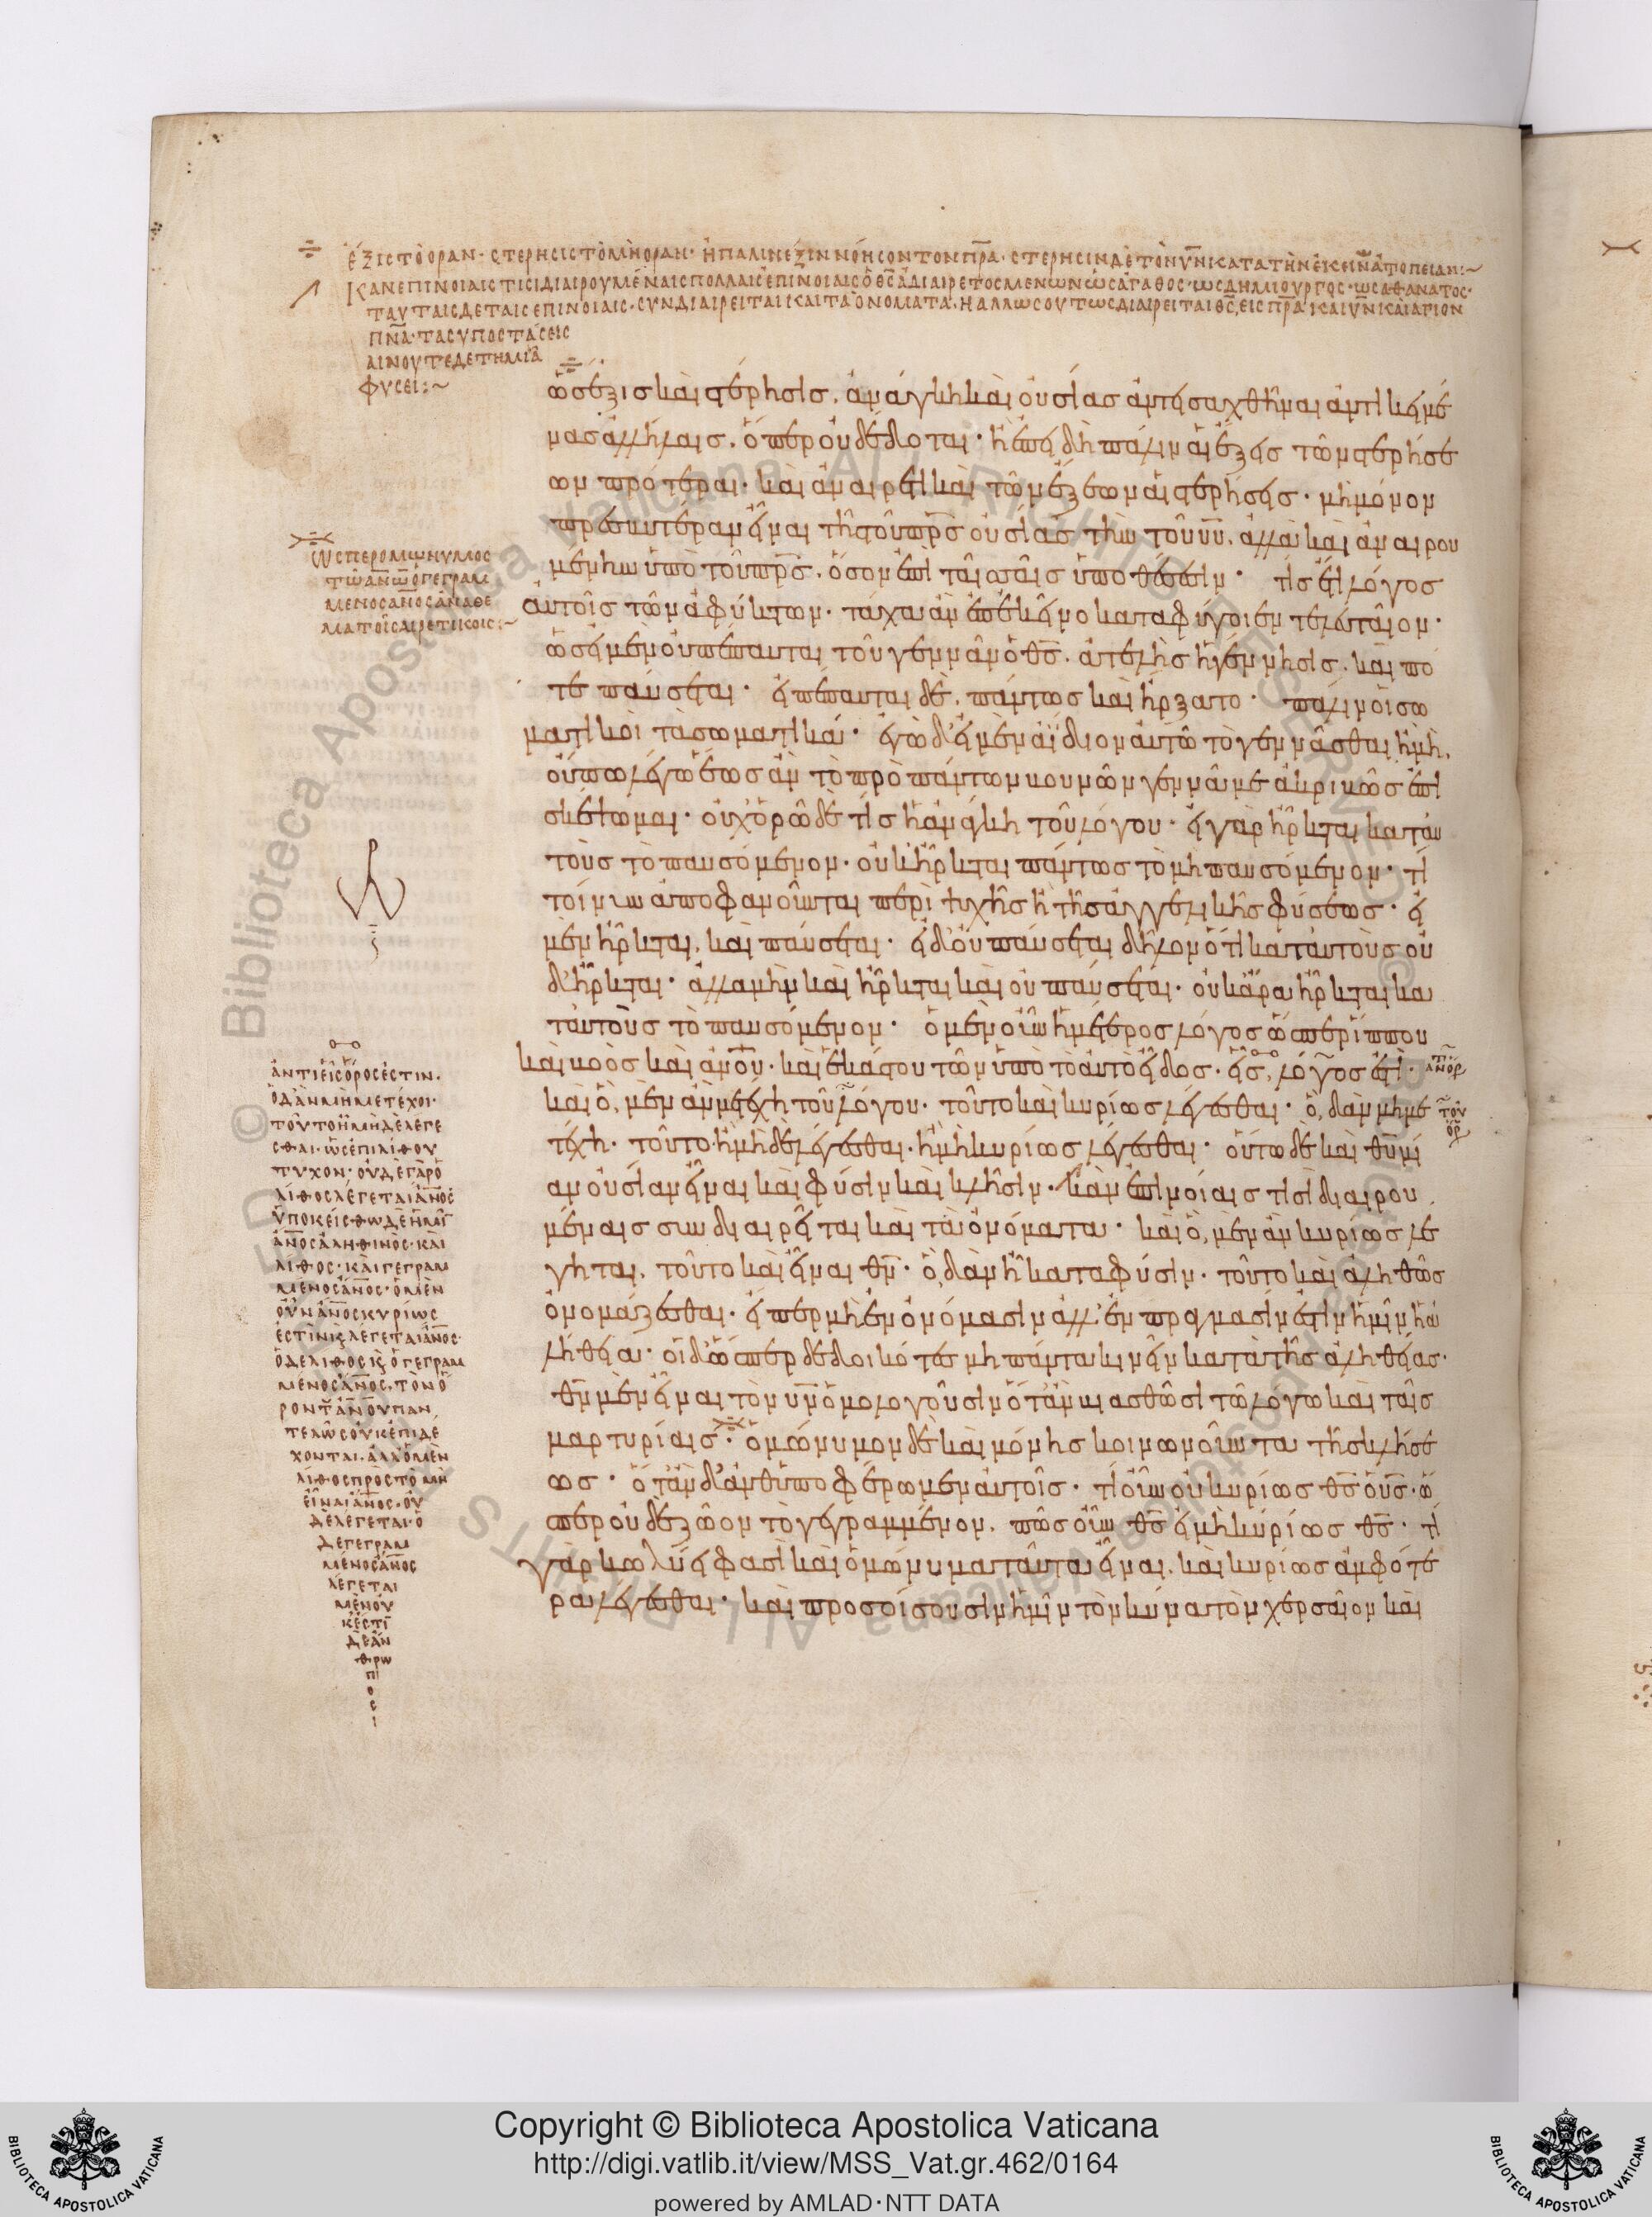 ἕξις τὸ ὁρᾶν· στέρησις τὸ μὴ ὁρᾶν· ἢ πάλιν ἕξιν νόησον τὸν πρα· στέρησιν δὲ τὸν υν κατὰ τὴν ἐκείνων ἀτοπείαν:~
Κἂν ἐπινοίαις τισὶ διαιρουμέναις πολλαῖς ἐπινοίαις ὁ θς ἀδιαίρετος μένων ὡς ἀγαθὸς· ὡς δημιουργὸς· ὡς ἀθάνατος·
ταύταις δὲ ταῖς ἐπινοίαις· συνδιαιρεῖται καὶ τὰ ὀνόματα· ἢ ἄλλως οὕτως διαιρεῖται ὁ θς, εἰς πρα καὶ υν καὶ ἅγιον
πνα· τὰς ὑποστάσεις
φύσει:~
ὡς ἕξις καὶ στέρησις, ἀνάγκη καὶ οὐσίας ἀντεισαχθῆναι ἀντικειμέ
νας ἀλλήλαις, ὅπερ οὐ δέδοται· ἢ ἐπειδὴ πάλιν αἱ ἕξεις τῶν στερήσε
ων πρότεραι· καὶ ἀναιρετικαὶ τῶν ἕξεων αἱ στερήσεις· μὴ μόνον
πρεσβυτέραν εἶναι τῆς τοῦ πρς οὐσίας τὴν τοῦ υυ, ἀλλὰ καὶ ἀναιρου
μένην ὑπὸ τοῦ πρς, ὅσον ἐπὶ ταῖς σαῖς ὑποθέσεσιν· τίς ἔτι λόγος
αὐτοῖς τῶν ἀφύκτων· τάχα ἂν ἐπ' ἐκεῖνο καταφύγοιεν τελευταῖον·
ὡς εἰ μὲν οὐ πέπαυται τοῦ γεννᾶν ὁ θς, ἀτελὴς ἡ γέννησις, καὶ πό
τε παύσεται· εἰ πέπαυται δὲ, πάντως καὶ ἤρξατο· πάλιν οἱ σω
ματικοὶ τὰ σωματικά· ἐγὼ δ' εἰ μὲν ἀΐδιον αὐτῶ τὸ γεννᾶσθαι ἢ μὴ,
οὔπω λέγω ἕως ἂν τὸ πρὸ πάντων βουνῶν γεννᾶ με ἀκριβῶς ἐπι
σκέψωμαι· οὐχ ὁρῶ δὲ τίς ἡ ἀνάγκη τοῦ λόγου· εἰ γὰρ ἦρκται κατ' αὐ
τοὺς τὸ παυσόμενον· οὐκ ἦρκται πάντως τὸ μὴ παυσόμενον· τί
τοίνυν ἀποφανοῦνται περὶ ψυχῆς ἢ τῆς ἀγγελικῆς φύσεως· εἰ
μὲν ἦρκται, καὶ παύσεται· εἰ δ' οὐ παύσεται δῆλον ὅτι κατ' αὐτοὺς οὐ
δ' ἦρκται· ἀλλὰ μὴν καὶ ἦρκται καὶ οὐ παύσεται· οὐκ ἄρα ἦρκται κα
τ' αὐτοὺς τὸ παυσόμενον· ὁ μὲν οὖν ἡμέτερος λόγος ὥσπερ ἵππου
καὶ βοὸς καὶ ἀνου· καὶ ἑκάστου τῶν ὑπὸ τὸ αὐτὸ εἶδος· εἷς, λόγος ἐστὶ·
καὶ ὃ, μὲν ἂν μετέχη τοῦ λόγου· τοῦτο καὶ κυρίως λέγεσθαι· ὃ, δ' ἂν μὴ με
τέχη· τοῦτο ἢ μὴ δὲ λέγεσθαι· ἢ μὴ κυρίως λέγεσθαι· οὕτω δὲ καὶ θυ μί
αν οὐσίαν εἶναι καὶ φύσιν καὶ κλῆσιν· κἂν ἐπινοίαις τισὶ διαιρου
μέναις συνδιαιρεῖται καὶ τὰ ὀνόματα· καὶ ὃ, μὲν ἂν κυρίως λέ
γηται, τοῦτο καὶ εἶναι θν· ὃ, δ' ἂν ἦ κατὰ φύσιν· τοῦτο καὶ ἀληθῶς
ὀνομάζεσθαι· εἴπερ μὴ ἐν ὀνόμασιν ἀλλ' ἐν πράγμασίν ἐστιν ἡμῖν ἡ ἀ
λήθεια· οἱ δ' ὥσπερ δεδοικότες μὴ πάντα κινεῖν κατὰ τῆς ἀληθείας·
θν μὲν εἶναι τὸν υν ὁμολογοῦσιν ὅταν βιασθῶσι τῶ λόγω καὶ ταῖς
μαρτυρίαις· ὁμώνυμον δὲ καὶ μόνης κοινωνοῦντα τῆς κλήσε
ως· ὅταν δ' ἀνθυποφέρωμεν αὐτοῖς· τί οὖν οὐ κυρίως θς ὁ υς· ὥ
σπερ οὐδὲ ζῶον τὸ γεγραμμένον. πῶς οὖν θς εἰ μὴ κυρίως θς· τί
γὰρ κωλύει φασὶ καὶ ὁμώνυμα ταῦτα εἶναι, καὶ κυρίως ἀμφότε
ρα λέγεσθαι· καὶ προσοίσουσιν ἡμῖν τὸν κύνα τὸν χερσαῖον καὶ
ὥσπερ ὁμώνυμος
τῶ ανω ὁ γεγραμ
μένος ανος ἀναθε
ματο αἱρετικοῖς:~
ἀντὶ εἷς ὅρος ἐστὶν·
ὃ δ' ἂν μὴ μετέχοι·
τοῦτο ἢ μηδὲ λέγε
σθαι· ὡς ἐπὶ λίθου
τυχόν· οὐδὲ γὰρ ὁ
λίθος λέγεται ανος
ὑποκείσθω δὲ ἡμῖν
ανος ἀληθινὸς· καὶ
λίθος· καὶ γεγραμ
μένος ανος· ὁ μὲν
οὖν ανος κυρίως
ἐστὶν κ λέγεται ανος·
ὁ δὲ λίθος κ ὁ γεγραμ
μένος ανος, τὸν ὅ
ρον τ ανου παν
τελῶς οὐκ ἐπιδέ
χονται· ἀλλ' ὁ μὲν
λίθος πρὸς τὸ μὴ
εἶναι ανος· οὐ
δὲ λέγεται· ὁ
δὲ γεγραμ
μένος ανος
λέγεται
μὲν οὐ
κ ἔστι
δὲ ἄν
θρω
π
ο
ς
Copyright © Biblioteca Apostolica Vaticana
http://digi.vatlib.it/view/MSS_Vat.gr.462/0164
powered by AMLAD·NTT DATA
BIBLIOTECA APOSTOLICA VATICANA
BIBLIOTECA APOSTOLICA VATICANA